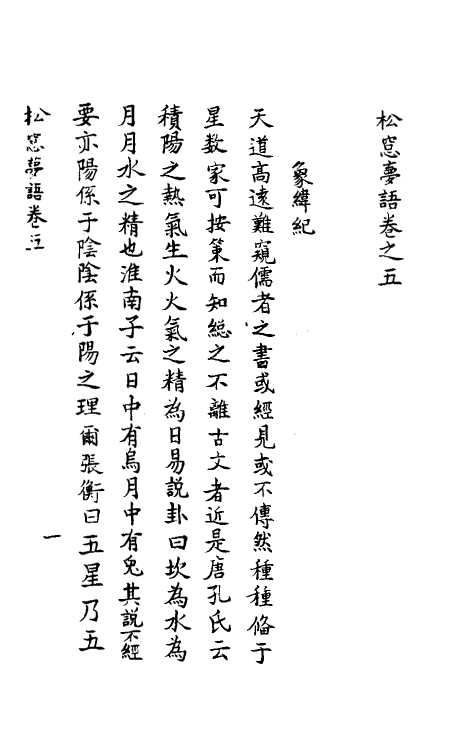 松窓夢語卷之五
象緯紀
天道高遠難窺儒者之書或經見或不傳然種種俻于
星数家可按策而知緫之不離古文者近是唐孔氏云
積陽之熱氣生火火氣之精為日易說卦曰坎為水為
月月水之精也淮南子云日中有烏月中有兔其說不經
要亦陽係于陰陰係于陽之理爾張衡曰五星乃五
松窓夢語卷五
一